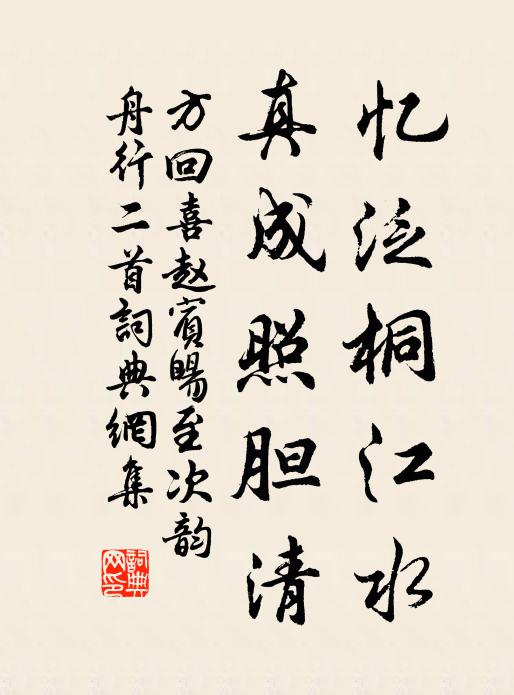 忆泛桐江水
真成照胆清
方回喜赵宾旸至次韵
舟行二首詞典網集
詞典
网印